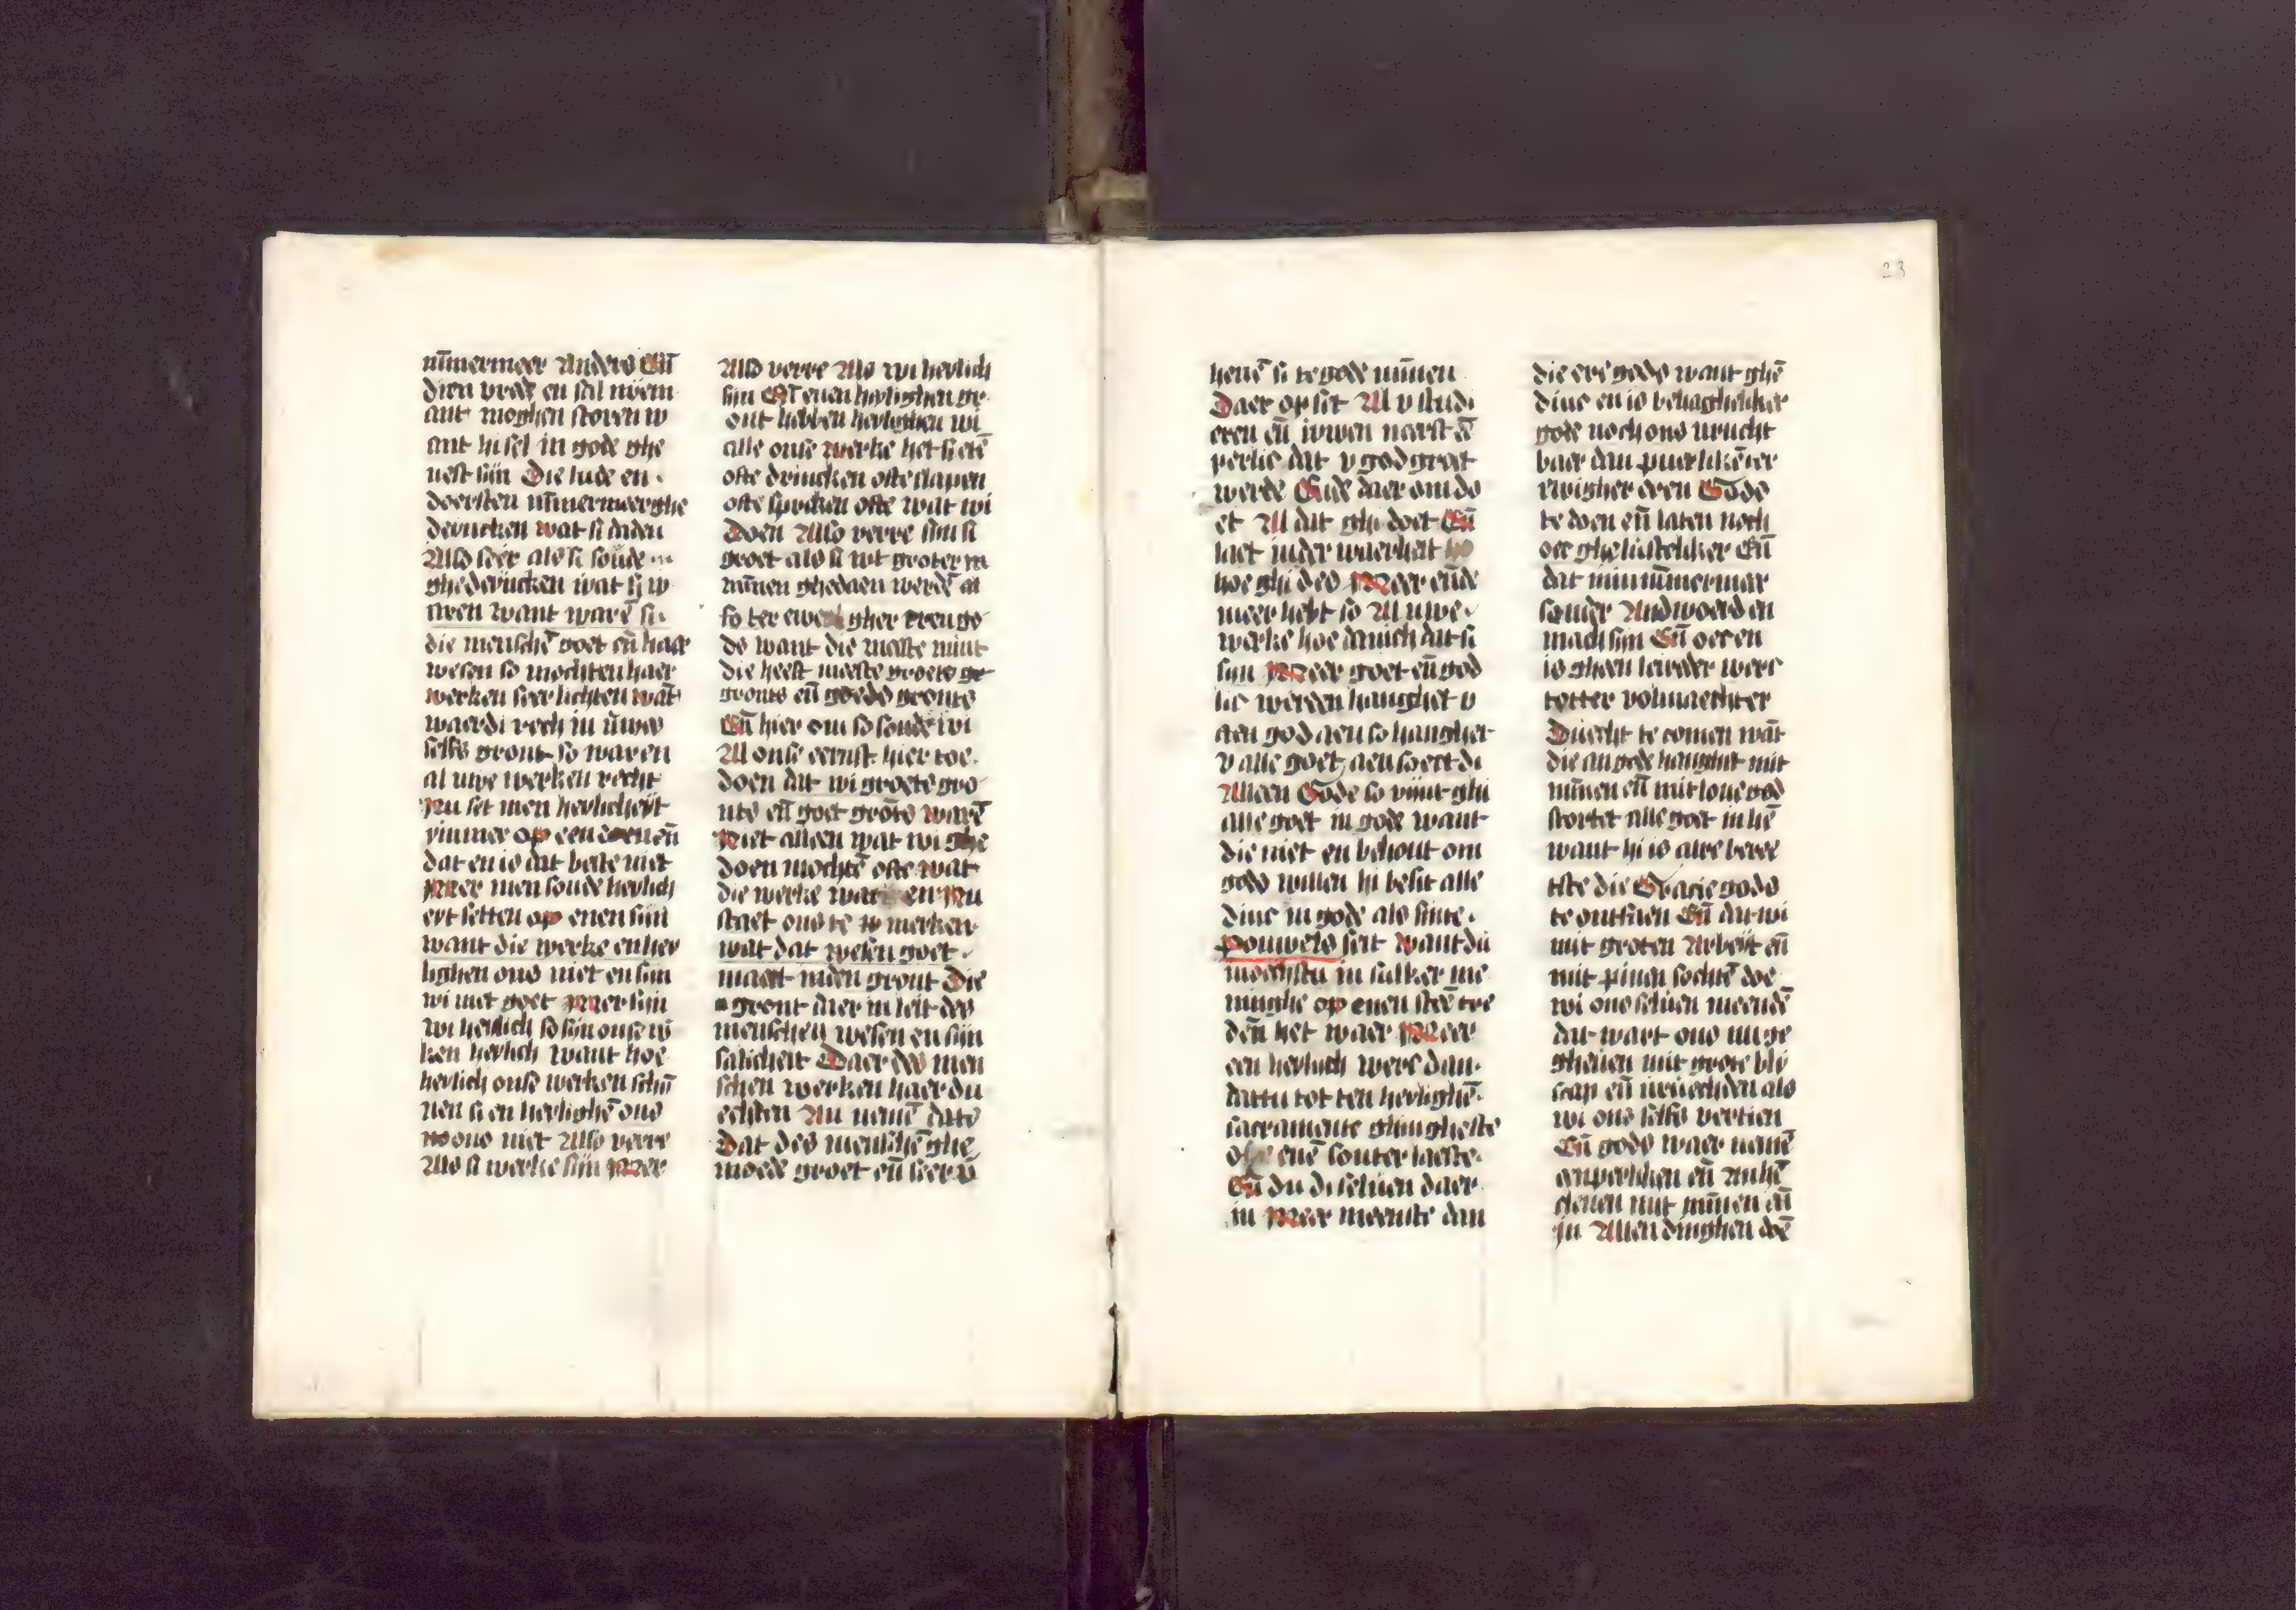 nm̄ermeer Anders En̄
dien vrede en sal niem
ant moghen storen w
ant hi sel in gode ghe
uest sijn Die lude en
doersten nm̄mermeer ghe
dencken wat si daden
Also seer als si soude
ghedencken wat sij w
aren want warē si
die menschē goet en̄ haer
wesen so mochten haer
werken seer lichten wāt
waerdi rech in uwes
selfs gront so waren
al uwe werken recht
Nu set men heylicheyt
ymmer op een en̄
dat en is dat beste niet
Meer men soude heylich
eyt setten op enen sijn
want die werke en hey
lighen ons niet en sijn
wi niet goet Meer sijn
wi heylich so sijn onse w
ken heylich want hoe
heylich onse werken schij
nen si en heylighē ons
ons niet Also verre
Als si werke sijn Meer
Also verre Als wi heylich
sijn En̄ enen heylighen gr
ont hebben heylighen wi
alle onse werke het si etē
ofte drincken ofte slapen
ofte spreken ofte wat wi
Doen Also verre sijn si
groet als si wt groter m
mīnen ghedaen werdē al
so ter ewe gher eren go
ds want die meeste mint
die heeft meeste groets ge
gronts en̄ goeds gronts
En̄ hier om so soude wi
Al onse ernst hier toe
doen dat wi groete gro
nts en̄ goet grōts warē
Niet alleen wat wi ghe
doen mochtē ofte wat
die werke wat en Nu
staet ons te merken
wat dat wesen goet
maect inden gront Die
gront daer in leit des
menschen wesen en sijn
salicheit Daer des men
schen werken haer du
echten An nemē dats
Dat des menschē ghe
moede groet en̄ seer v̄
heuē si te gode mīnen
Daer op set Al v studi
eren en̄ iuwen neerst ē
perlic dat v god groet
werde Ende daer om do
et Al dat ghi doet En̄
laet inder waerheit
hoe ghi des Meer ende
meer hebt so Al uwe
werke hoe danich dat si
sijn Meer goet en̄ god
lic werden hanghet v
aen god aen so hanghet
v alle goet aen soect di
Alleen Gode so vijnt ghi
alle goet in gode want
die niet en behout om
gods willen hi besit alle
dinc in gode als sinte
pouwels seit want du
mochstu in sulker me
ninghe op enen steē tre
den het waer Meer
een heylich werc dan
dattu tot ten heylighē
sacramente ghingheste
enē souter laeste
En̄ du di seluen daer
in Meer meenste dan
die ere gods want ghē
dinc en is behaghelicker
gode noch ons vrucht
baer dan puerlikē ter
ewigher eren Gods
te doen en̄ laten noch
oec ghelustelicker En̄
dat mi nīmermeer
sonder Andwoerd en
mach sijn En̄ oec en
is gheen leweder werc
totter volmaechter
Duecht te comen wāt
die an gode hanghet mit
mīnen en̄ mit loue god
stortet alle goet in hē
want hi is alre bere
tste die Gracie gods
te ontfaen En̄ dat wi
mit groten Arbeyt en̄
mit pinen sochtē doe
wi ons seluen meendē
dat wart ons nu ge
gheuen mit grote bli
scap en̄ vruechden als
wi ons selfs vertien
En̄ gods waer nemē
enperliken en̄ An hē
cleuen mit mīnen en̄
in Allen dinghen doē
23